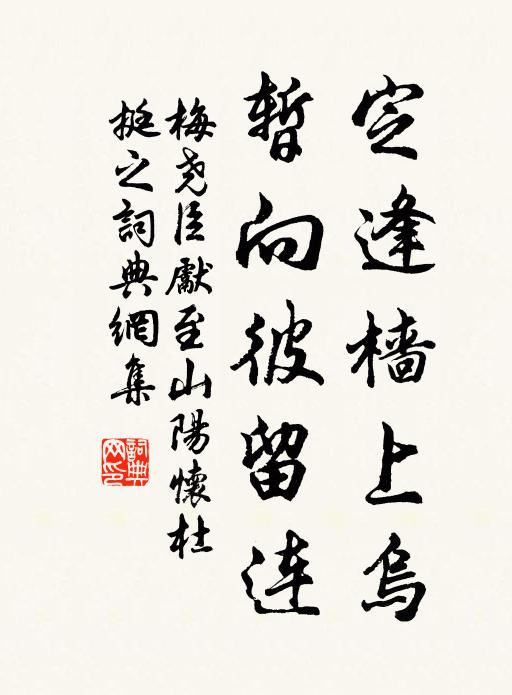 定逢樯上烏
暫向彼留連
梅尧臣獻至山陽懷杜
挺之詞典網集
詞典网印